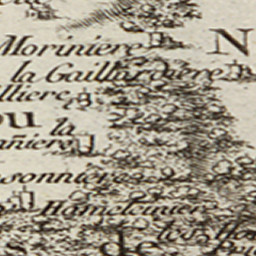 Moriniere
N
la Gaillardiere
lliere
ou la
añiere
sonniere
Hameliniere
les
s de